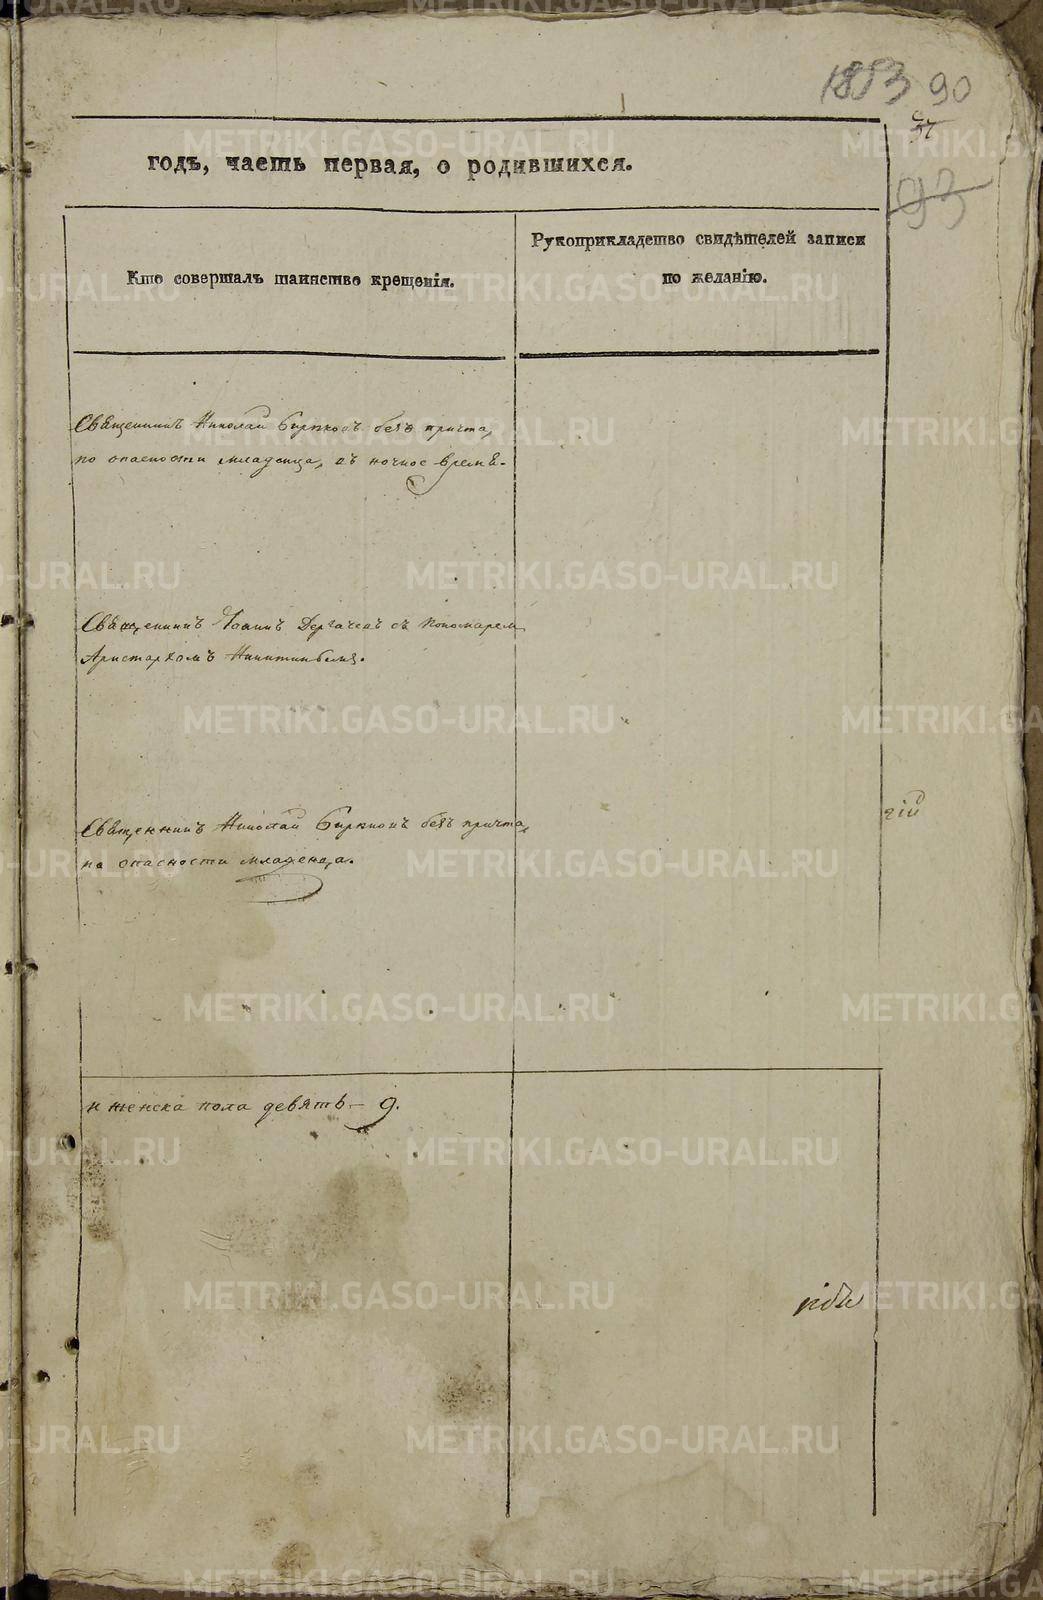 1853 90
93
годъ, часть первая, о родившихся.
Кто совершалъ таинство крещенія.
Рукоприкладство свидѣтелей записи
по желанію.
Священникъ Николай Бирюковъ безъ причта,
по опасности младенца, въ ночное время.
Священникъ Іоаннъ Дергачевъ съ Пономаремъ
Аристархомъ Никитинымъ.
Священникъ Николай безъ причта,
по опасности младенца.
гій
и женска пола девять — 9.
METRIKI.GASO-URAL.RU